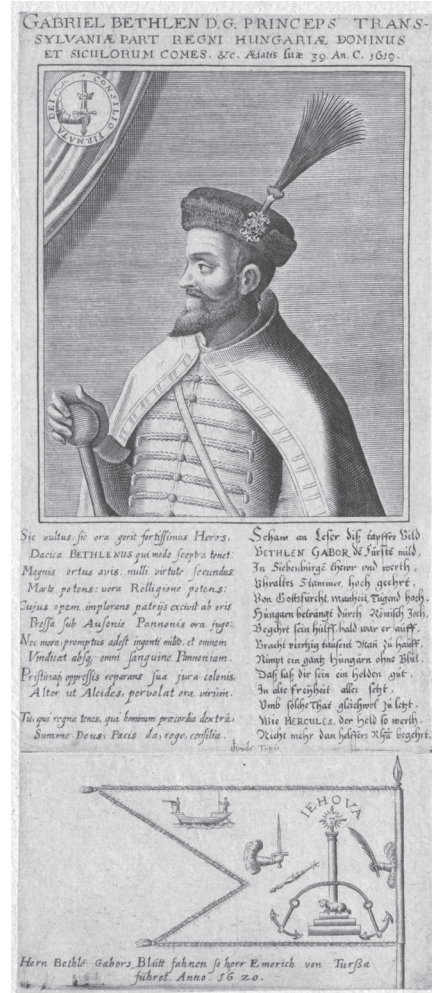 GABRIEL BETHLEN D.G. PRINCEPS TRANS-
SYLVANIÆ PART REGNI HUNGARIÆ DOMINUS
ET SICULORUM COMES, &c. Ætatis suæ 39. An. C. 1619.
CONSILIO FIRMATA DEI
Sic vultus, sic ora gerit fortissimus Heros,
Dacica BETHLENUS qui modo sceptra tenet:
Magnis ortus avis, nulli virtute secundus
Marte potens: vera Relligione potens:
Cujus opem implorans patrijs excivit ab oris
Pressa sub Ausonio Pannonis ora jugo:
Nec mora; promptus adest ingenti milite, et omnem
Vindicat absq; omni sanguine Pannoniam.
Pristinaq; oppressis reparans sua jura colonis,
Alter ut Alcides, pervolat ora virûm.
Tu, qui regna tenes, qui hominum præcordia dextrâ,
Summe Deus; Pacis da, rogo, consilia.
Schaw an Leser diß tapffre Bild
BETHLEN GABOR dē Fürstē mild,
In Siebenbürgē thewr vnd werth,
Vhraltes Stammes, hoch geehrt,
Von Gottsfürcht, manheit, Tugend hoch,
Hüngarn betrangt dürch Römisch Joch,
Begehrt sein hülff, bald war er auff,
Bracht vierzig taüsent Man zü hauff,
Nimpt ein gantz Hüngarn ohne Blüt.
Daß laß dir sein ein helden güt.
In alte freiheit alles setzt,
Vmb solche That gleichwol zü letzt,
Wie HERCULES, der held so werth,
Nicht mehr dan helffers Rhüm begehrt.
IEHOVA
Hern Bethlē Gabors Blütt fahnen so herr Emerich von Turßa
führet. Anno. 1620.